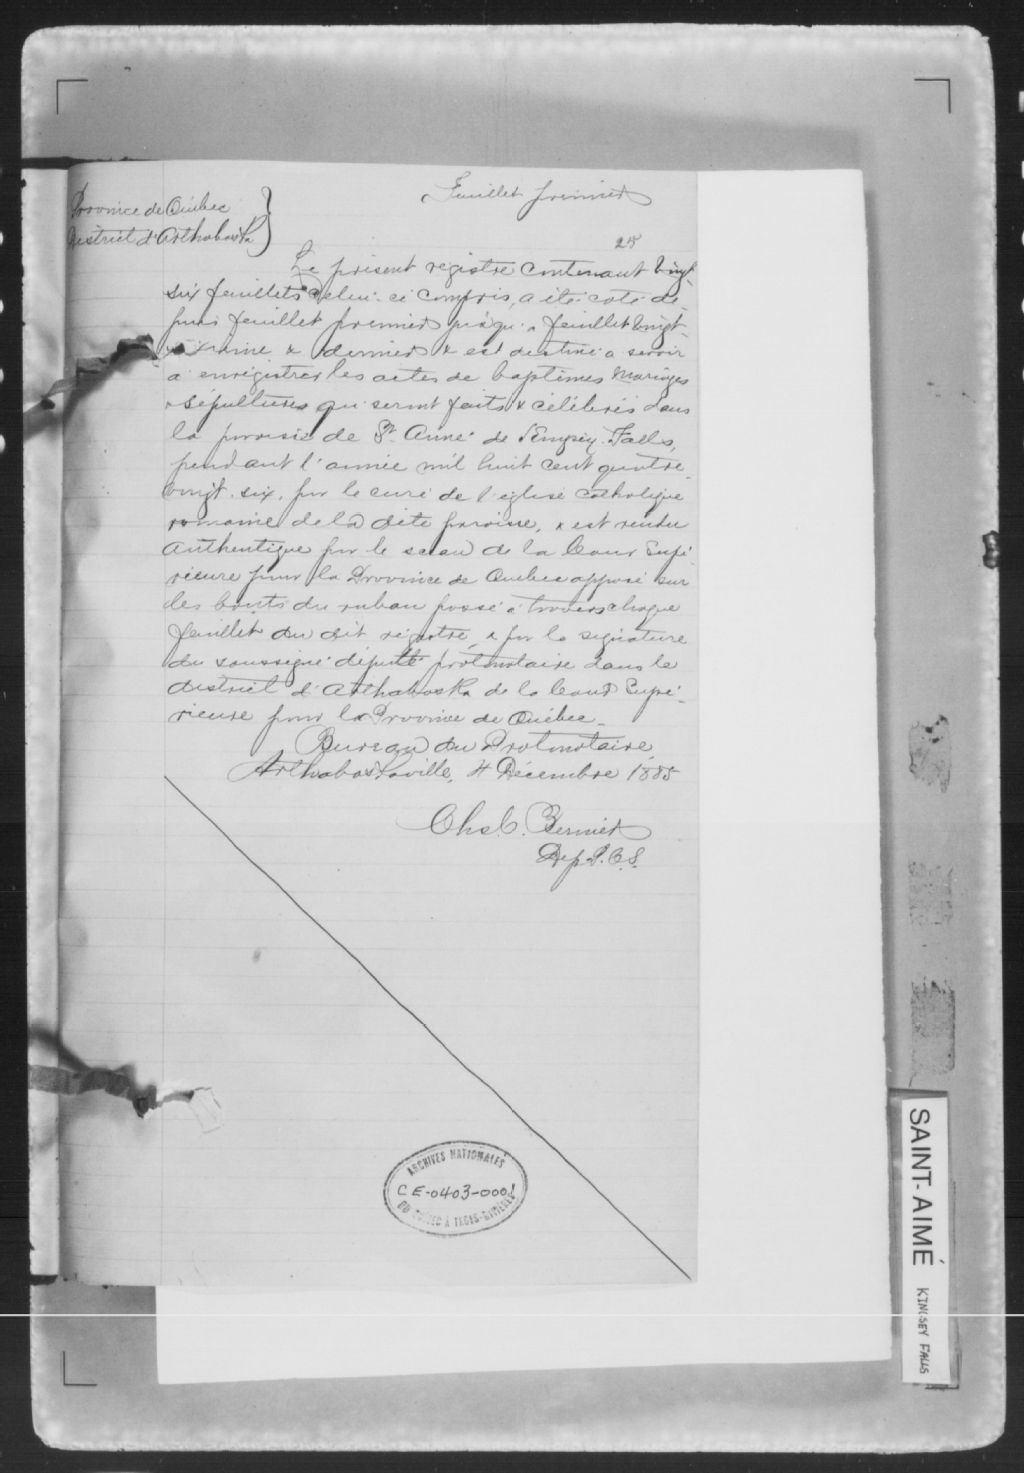 Feuillet premier
Province de Québec
District d'Arthabaska
25
Le présent registre contenant vingt
six feuillets celui-ci compris, a été coté de-
puis feuillet premier jusqu'a feuillet vingt-
& dernier & est destiné a servir
a enregistrer les actes de baptêmes Mariages
& sépultures qui seront faits & célébrés dans
la paroisse de St. Aimé de Kingsey Falls,
pendant l'année mil huit cent quatre
vingt-six, par le curé de l'église catholique
romaine de la dite paroisse, & est rendu
authentique par le sceau de la Cour Supé-
rieure pour la Province de Québec apposé sur
les bouts du ruban passé à travers chaque
feuillet du dit registre, & par la signature
du soussigné député protonotaire dans le
district d'Arthabaska de la Cour Supé-
rieure pour la Province de Québec.
Bureau du Protonotaire
Arthabaskaville, 4 Décembre 1885
Chs. C. Bernier
Dep. P.C.S.
ARCHIVES NATIONALES
CE-0403-0001
DU QUÉBEC À TROIS-RIVIÈRES
SAINT-AIMÉ
KINGSEY FALLS